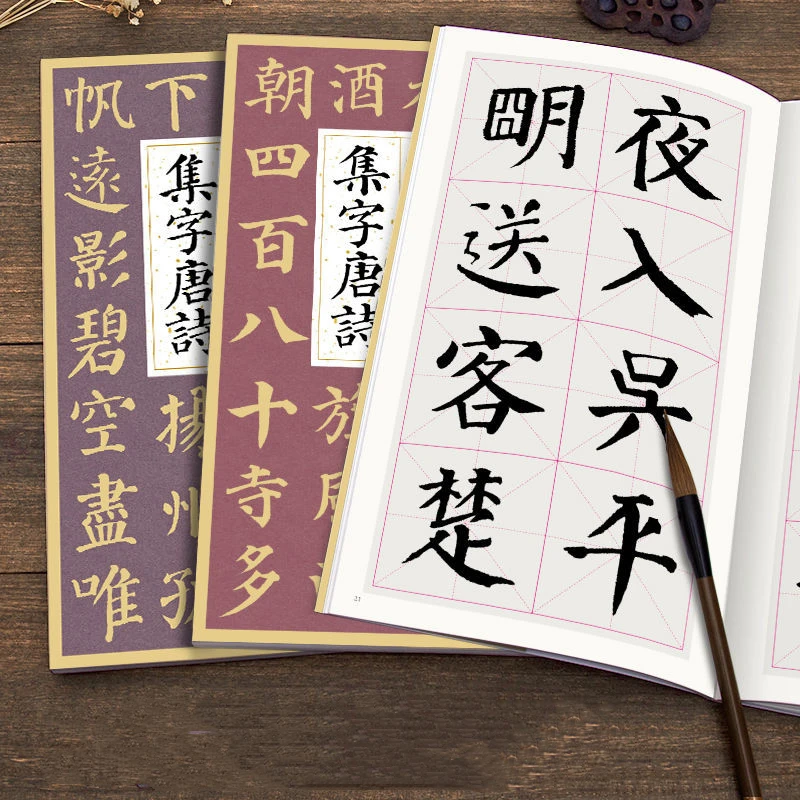 下
揚州孤
帆遠影碧空盡唯
集字唐詩
酒
旗風
朝四百八十寺多
集字唐詩
夜入吳平
明送客楚
21